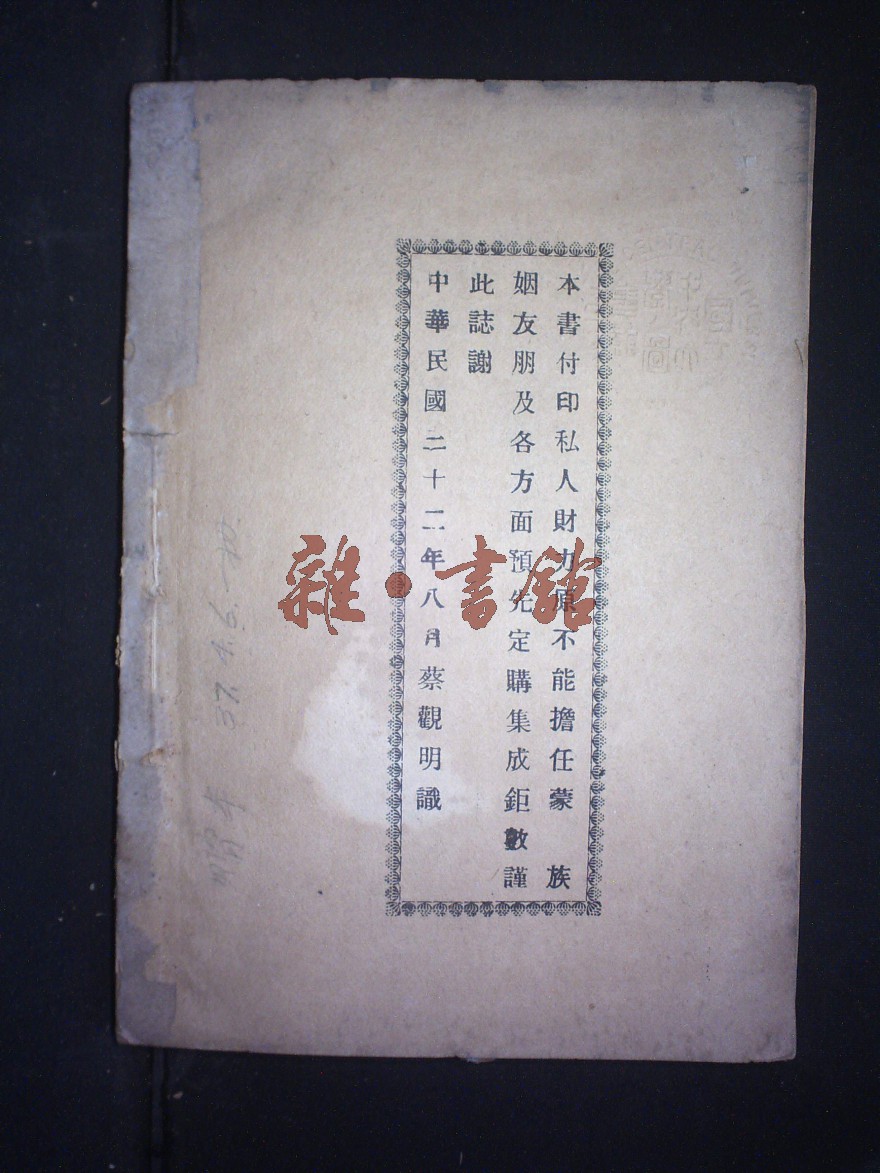 本書付印私人財力原不能擔任蒙　族
姻友朋及各方面預先定購集成鉅數謹
此誌謝
中華民國二十二年八月蔡觀明識
雜·書館
37.4.6.